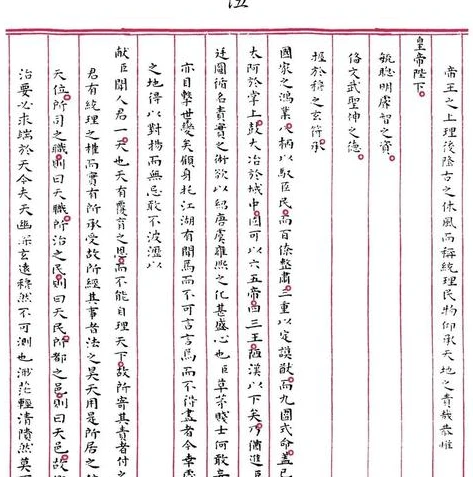 帝王之上理後隆古之休風而稱統理民物仰承天地之責哉恭惟
皇帝陛下
毓聰明睿智之資
備文武聖神之德
握於穆之玄符承
國家之鴻業八柄以馭臣民而百僚整肅三重以定謨猷而九圍式命蓋已
太阿於掌上鼓大冶於域中固可以六五帝四三王陋漢以下矣乃猶進臣
廷圖循名責實之術欲以紹唐虞雍熙之化甚盛心也臣草茅賤士何敢妄
亦目擊世變矣顧身托江湖有聞焉而不可言言焉而不得盡者今幸處
之地得以對揚而無忌敢不披瀝以
獻臣聞人君一天也天有覆育之恩而不能自理天下故所寄其責者付之
君有統理之權而實有所承受故所經其事者法之昊天用是所居之位
天位所司之職則曰天職所治之民則曰天民所都之邑則曰天邑故
治要必求端於天今夫天幽深玄遠穆然不可測也渺茫輕清隤然莫